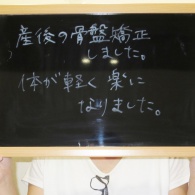 産後の骨盤矯正
しました。
体が軽く楽に
なりました。